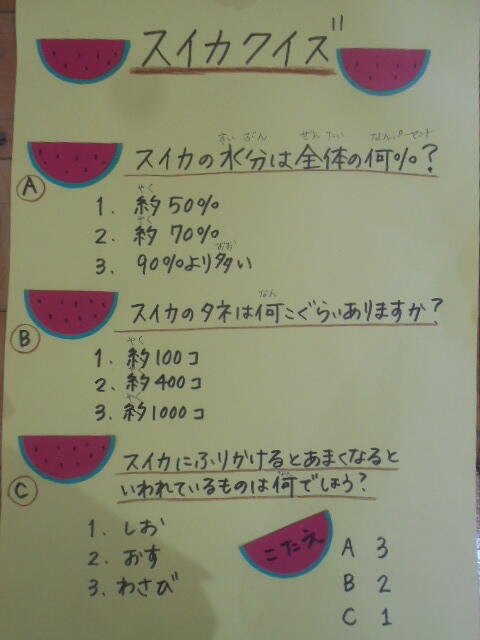 スイカクイズ
A スイカの水分は全体の何%?
すいぶん ぜんたい なんパーセント
1. 約50%
やく
2. 約70%
やく
3. 90%より多い
おお
B スイカのタネは何こぐらいありますか?
なん
1. 約100コ
やく
2. 約400コ
やく
3. 約1000コ
やく
C スイカにふりかけるとあまくなると
いわれているものは何でしょう?
なん
1. しお
2. おす
3. わさび
こたえ
A 3
B 2
C 1